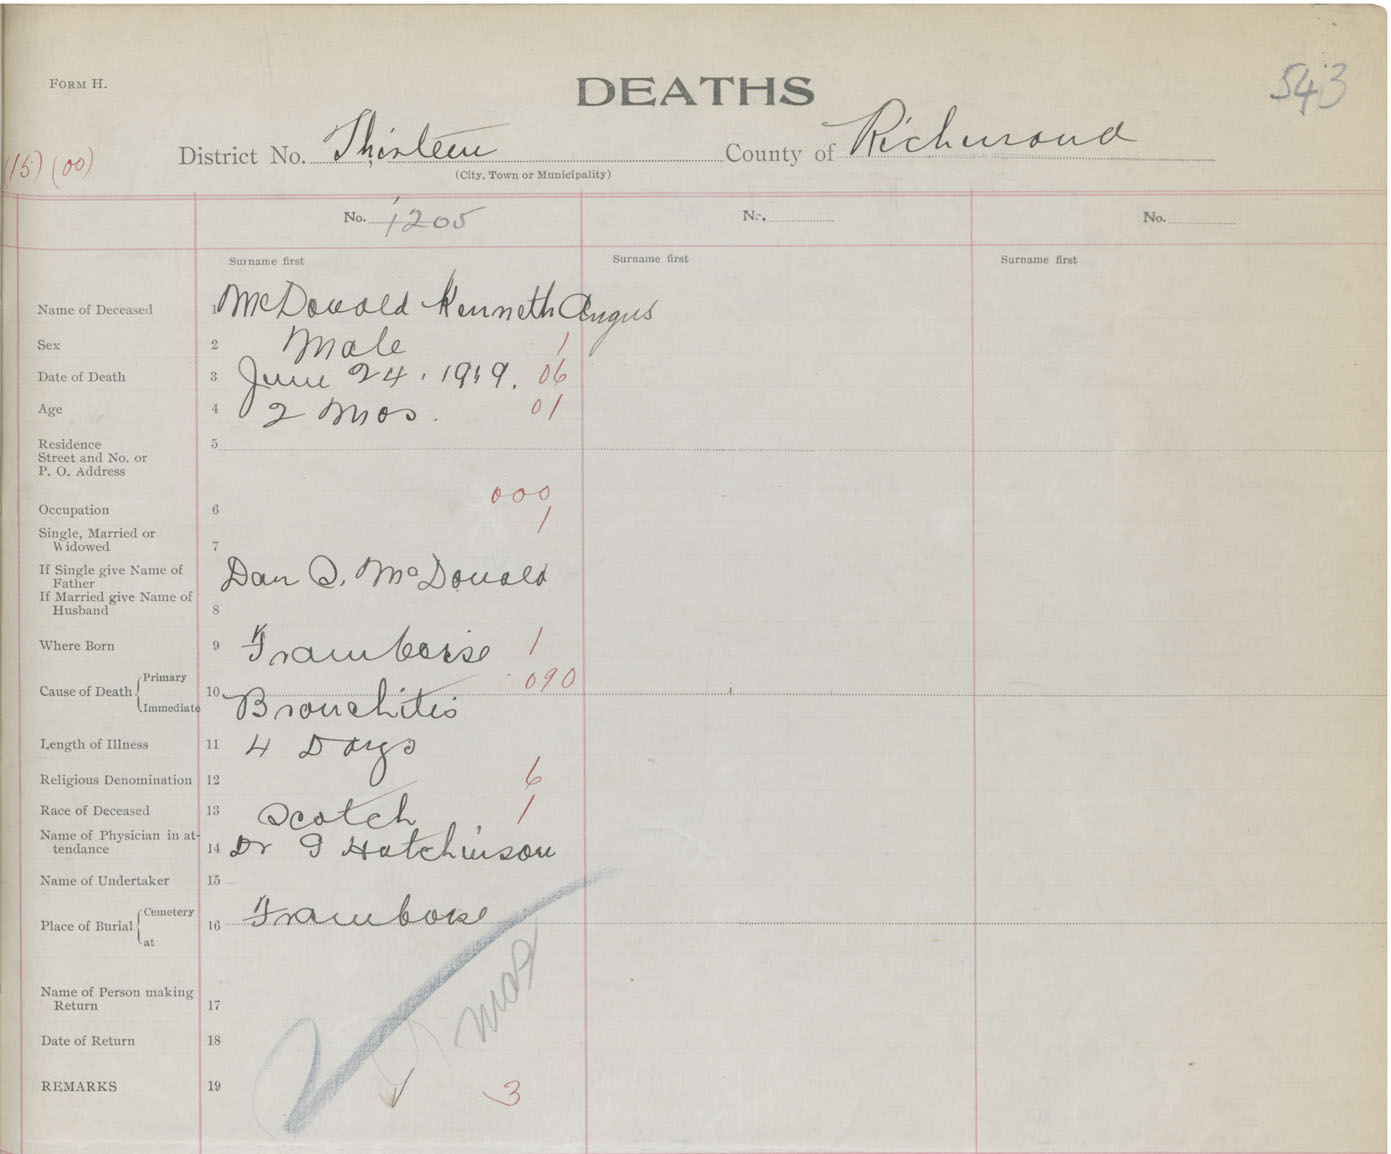 FORM H.
DEATHS
543
(15) (00)
District No. Thirteen County of Richmond
(City, Town or Municipality)
No. 1205 No. No.
Surname first Surname first Surname first
Name of Deceased 1 McDonald Kenneth Angus
Sex 2 Male 1
Date of Death 3 June 24, 1919. 06
Age 4 2 Mos. 01
Residence 5
Street and No. or
P. O. Address
000
Occupation 6
1
Single, Married or
Widowed 7
If Single give Name of
Father
Dan McDonald
If Married give Name of
Husband 8
Where Born 9 Framboise 1
090
Cause of Death Primary
Immediate
10 Bronchitis
Length of Illness 11 4 Days
Religious Denomination 12 6
Race of Deceased 13 Scotch 1
Name of Physician in at-
tendance 14 Dr Hutchinson
Name of Undertaker 15
Place of Burial Cemetery
at
16 Framboise
Name of Person making
Return 17
Date of Return 18
mos
REMARKS 19 3